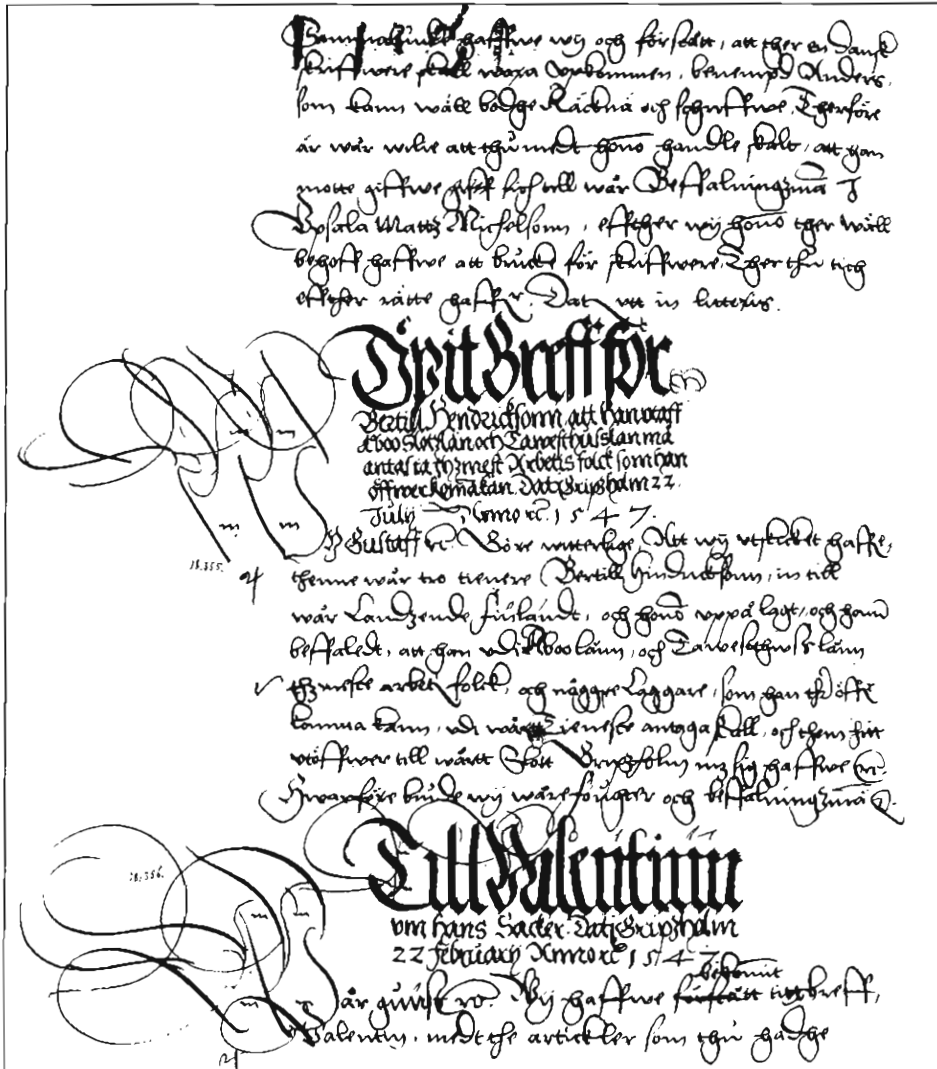 haffwe wij och förstått, att ther en Dansk
skriffwere skall wara vpkommen, benempd Anders,
som kann wäll bodhe Räcknä och schriffwe, Therföre
är wår wilie att thu medt honō handle skalt, att han
motte giffwe sich till wår Beffalningzmā I
Vpsala Mattz Michelsonn, effther wij honō ther wäll
behoff haffwe att brucke för skriffwere, Ther thu tich
effther rätte haffr. Dat vtt in litteris.
Öpit Breff för
Bertill Hendricksonn att han vtaff
åboo Slotzlän och Tawesthuslän må
antaga thz mest Arbetisfolck som han
öffwerkomā kan. Dat Gripzholm 22.
July Anno rc 1547.
Gustaff rc. Göre witterlige, Att wij vtskicket haffe,
18,355.
thenne wår tro tienere Bertill Hindricksonn, in till
wår Landzende finlandt, och honō vppå lagt, och hann
beffaledt, att han vdi Åboo länn, och Tawesthws länn
thz meste arbetz folck, och någgre Laggare, som han thr öffr
komma kann, vdi wårtt Tieneste antaga skall, och them hitt
vtöffwer till wårtt Slott Gripzholm mz sig haffwe rc.
Hwarföre biude wij wåre fougter och beffalningzmā
Till Valentinum
18,356.
vm Hans Säcker Datz Gripzholm
22 February Anno rc 1547
bekomit
wår gunst rc. Wij haffwe förstått titt breff,
Valentin, medt the artickler som thu hadhe